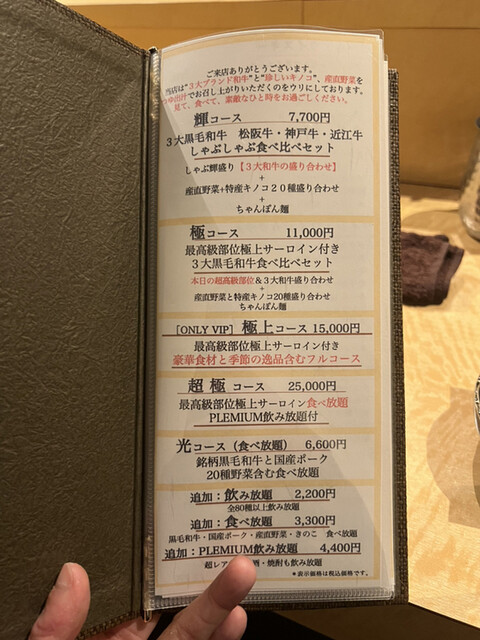 ご来店ありがとうございます。
当店は"３大ブランド和牛"と"珍しいキノコ"、産直野菜を
つゆ出汁でお召し上がりいただくのをウリにしております。
見て、食べて、素敵なひと時をお過ごしください。
輝コース 7,700円
３大黒毛和牛 松阪牛・神戸牛・近江牛
しゃぶしゃぶ食べ比べセット
しゃぶ輝盛り【３大和牛の盛り合わせ】
+
産直野菜+特産キノコ２０種盛り合わせ
+
ちゃんぽん麺
極コース 11,000円
最高級部位極上サーロイン付き
３大黒毛和牛食べ比べセット
本日の超高級部位＆３大和牛盛り合わせ
+
産直野菜と特産キノコ20種盛り合わせ
ちゃんぽん麺
[ONLY VIP] 極上コース 15,000円
最高級部位極上サーロイン付き
豪華食材と季節の逸品含むフルコース
超極コース 25,000円
最高級部位極上サーロイン食べ放題
PLEMIUM飲み放題付
光コース（食べ放題） 6,600円
銘柄黒毛和牛と国産ポーク
20種野菜含む食べ放題
追加：飲み放題 2,200円
全80種以上飲み放題
追加：食べ放題 3,300円
黒毛和牛・国産ポーク・産直野菜・きのこ 食べ放題
追加：PLEMIUM飲み放題 4,400円
超レア 酒・焼酎も飲み放題
＊表示価格は税込価格です。